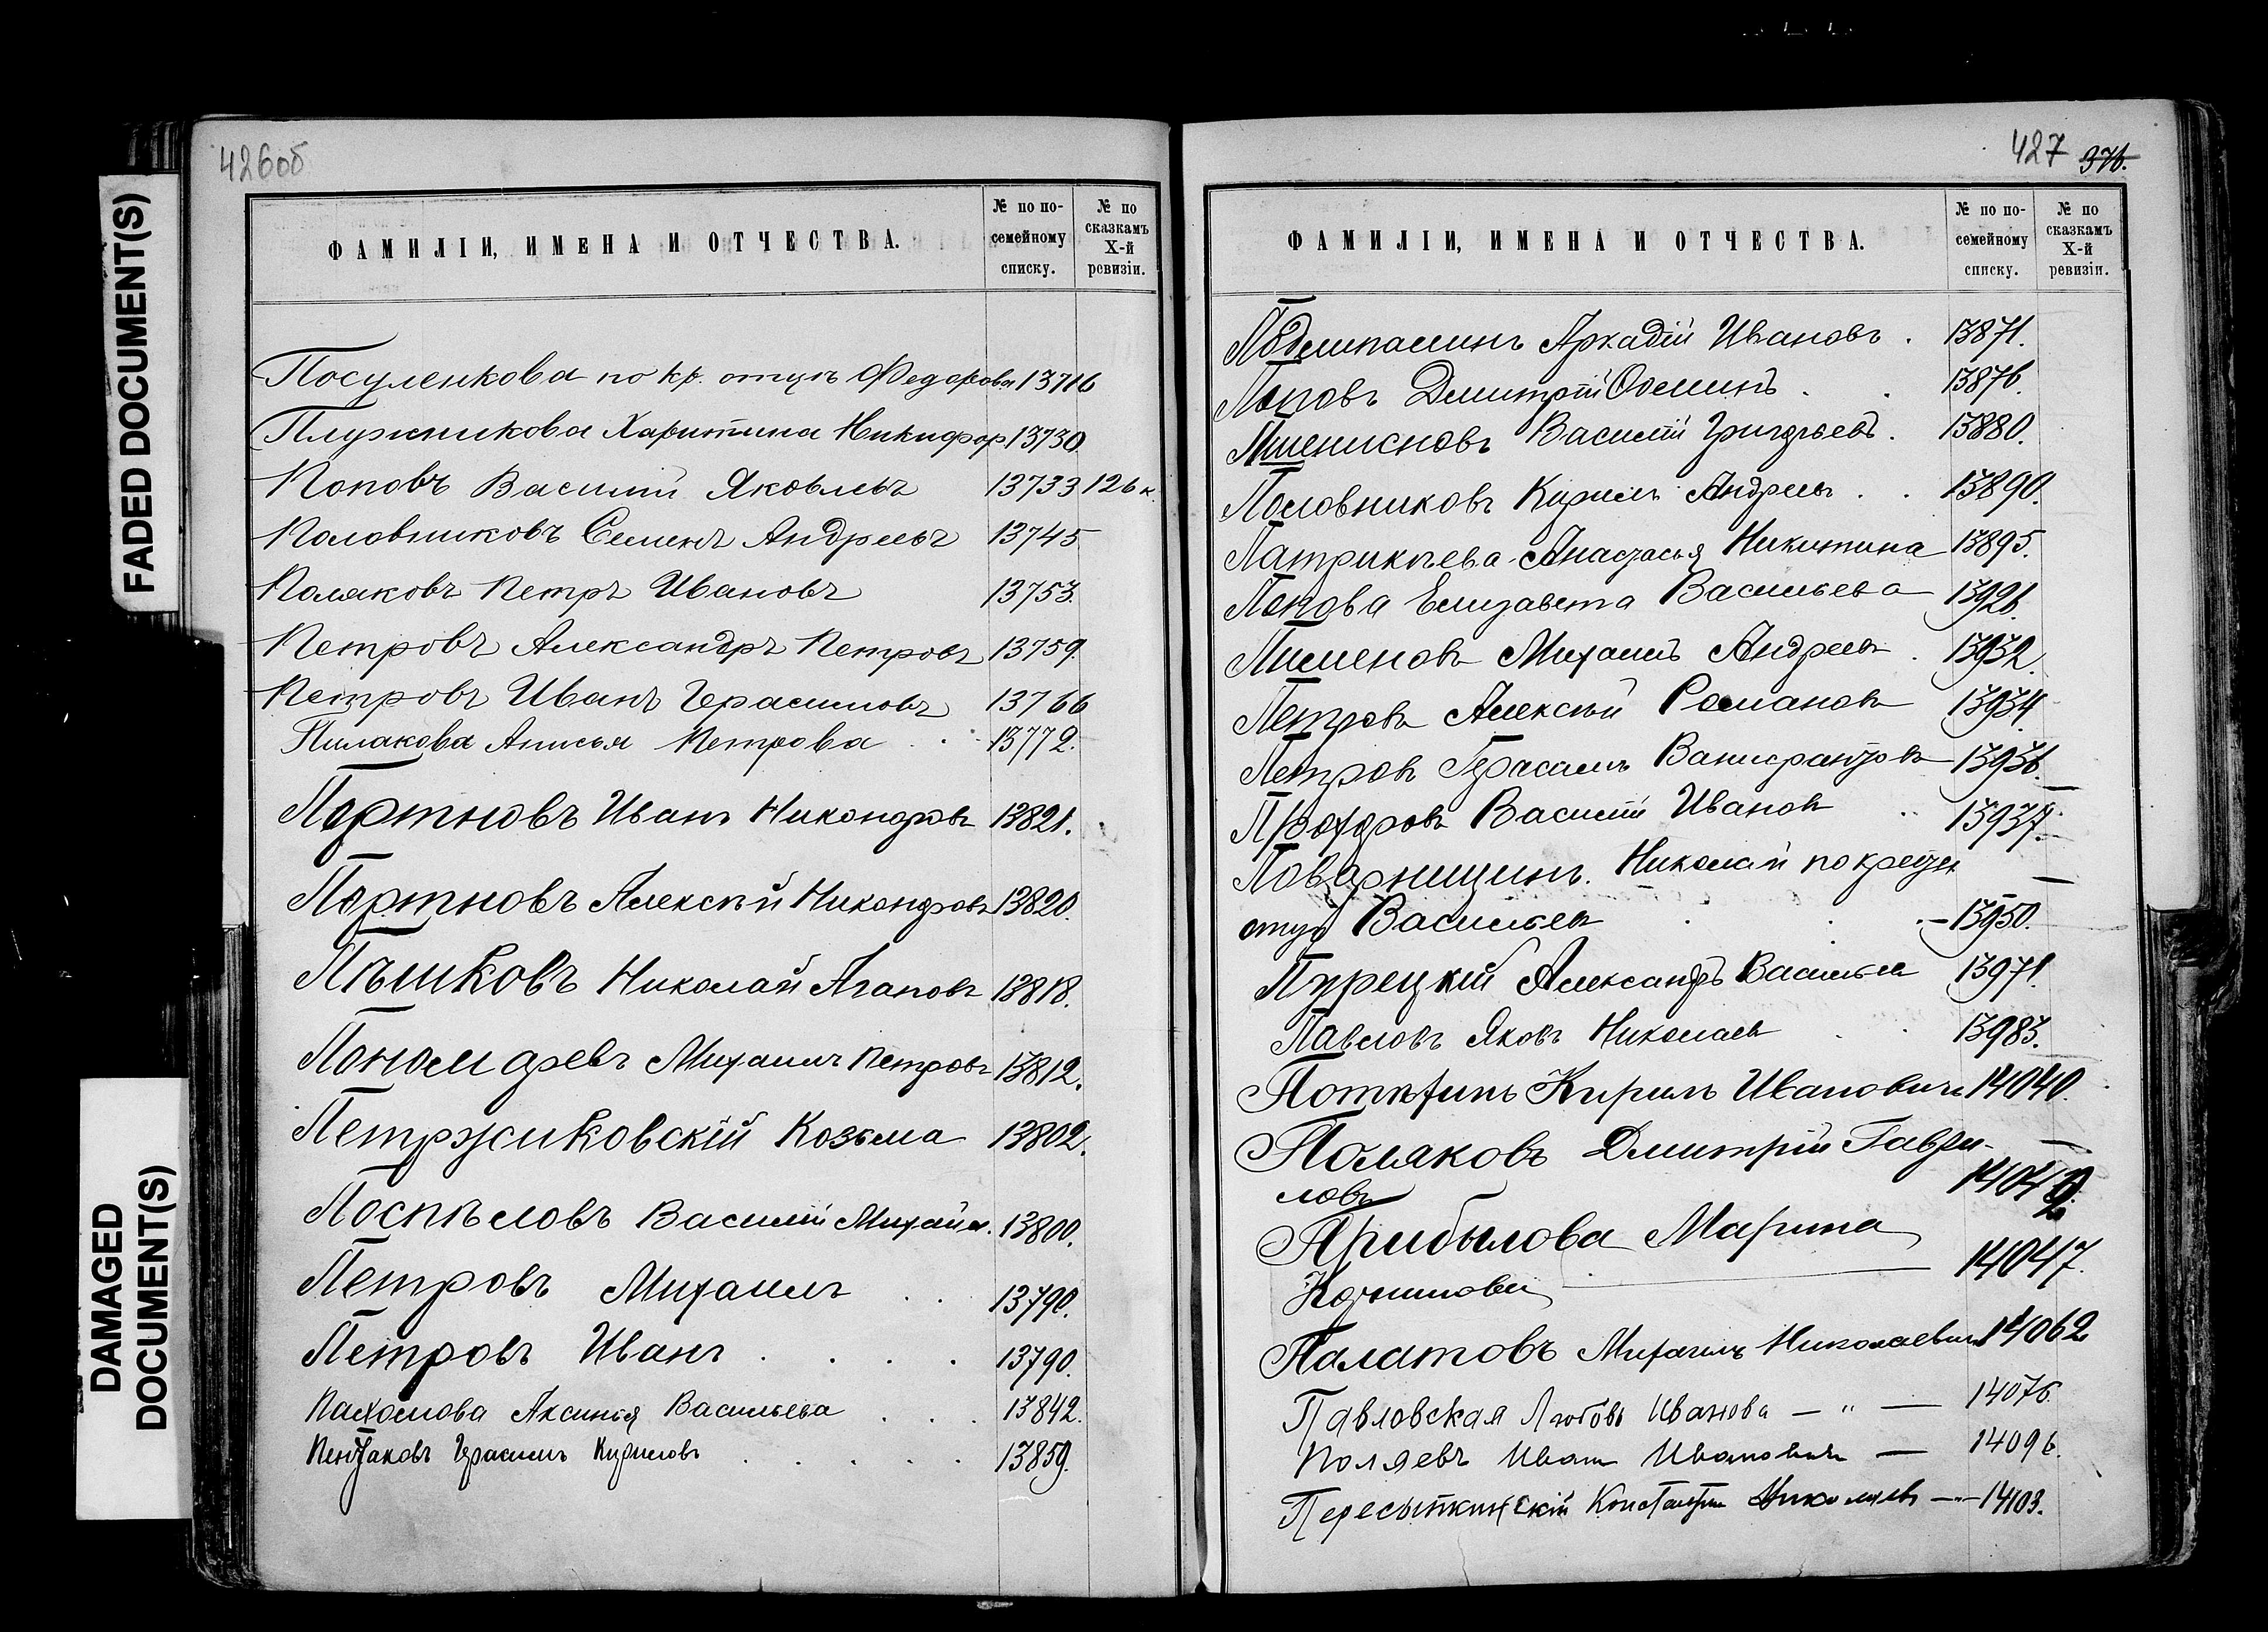 FADED DOCUMENT(S)
DAMAGED DOCUMENT(S)
426об
ФАМИЛІИ, ИМЕНА И ОТЧЕСТВА.
№ по по-семейному списку.
№ по сказкамъ X-й ревизіи.
Посуленкова по кр. отцѣ Федорова 13716
Плужникова Харитина Никифор. 13730
Поповъ Василій Яковлевъ 13733 126 к.
Половниковъ Семенъ Андреевъ 13745
Поляковъ Петръ Ивановъ 13753.
Петровъ Александръ Петровъ 13759.
Петровъ Иванъ Герасимовъ 13766
Пилакова Анисья Петрова 13772.
Портновъ Иванъ Никондровъ 13821.
Портновъ Алексѣй Никондровъ 13820.
Пѣшковъ Николай Агаповъ 13818.
Пономаревъ Михаилъ Петровъ 13812.
Петржиковскій Козьма 13802.
Поспѣловъ Василій Михайл. 13800.
Петровъ Михаилъ . . 13790.
Петровъ Иванъ . . . . 13790.
Пахомова Аксинья Васильева . . . 13842.
Герасимъ Кириловъ . . . . . 13859.
427 376.
ФАМИЛІИ, ИМЕНА И ОТЧЕСТВА.
№ по по-семейному списку.
№ по сказкамъ X-й ревизіи.
Аркадій Ивановъ . 13871.
Поповъ Дмитрій . . 13876.
Василій Григорьевъ . 13880.
Половниковъ Кирилъ Андреевъ . . 13890.
Патрикѣева Анастасья Никитина 13895.
Попова Елизавета Васильева 13926.
Пименовъ Михаилъ Андреевъ . 13932
Петровъ Алексѣй Романовъ 13934.
Петровъ Герасимъ 13936.
Прохоровъ Василій Ивановъ . . 13937.
Поварницинъ. Николай по крестн
отцу Васильевъ . . . 13950.
Пурецкій Александръ Васильев 13971.
Павловъ Яковъ Николаевъ . . 13983.
Потѣхинъ Кирилъ Ивановичъ 14040.
Поляковъ Дмитрій Гаври-
ловъ
Прибылова Марина
Корнилова 14047.
Палатовъ Михаилъ Николаевич. 14062
Павловская Любовь Иванова — " — 14076.
Поляевъ Иванъ Ивановичъ — 14096.
Константин Николаевъ — 14103.